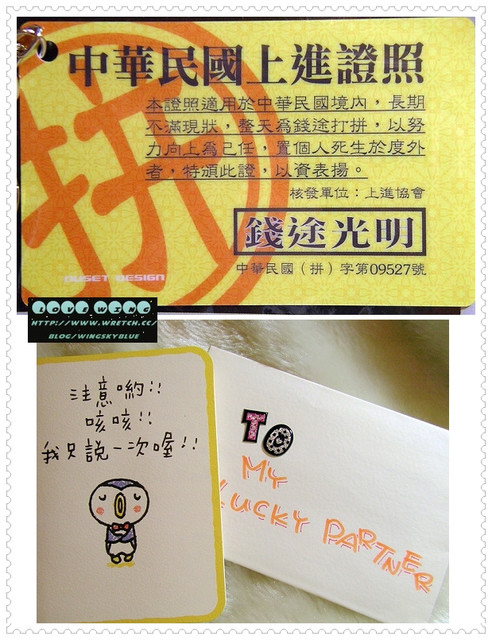 中華民國上進證照
本證照適用於中華民國境內，長期
不滿現狀，整天為錢途打拼，以努
力向上為己任，置個人死生於度外
者，特頒此證，以資表揚。
核發單位：上進協會
錢途光明
中華民國（拼）字第09527號
拼
MUSET DESIGN
LOVE WING
HTTP://WWW.WRETCH.CC/
BLOG/WINGSKYBLUE
注意喲!!
咳咳!!
我只說一次喔!!
TO
MY
LUCKY PARTNER